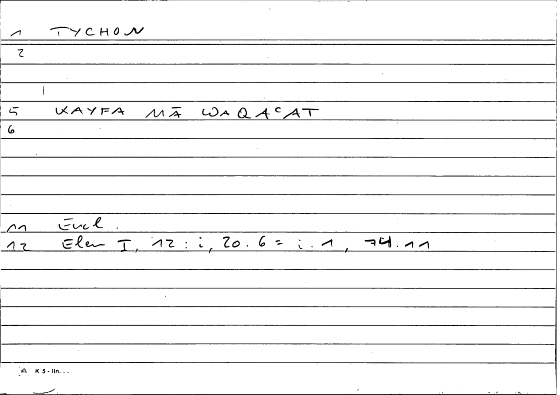 1 TYCHON
2
5 KAYFA MĀ WAQAʿAT
6
11 Eucl.
12 Elem I, 12 : i, 20.6 = i.1, 74.11